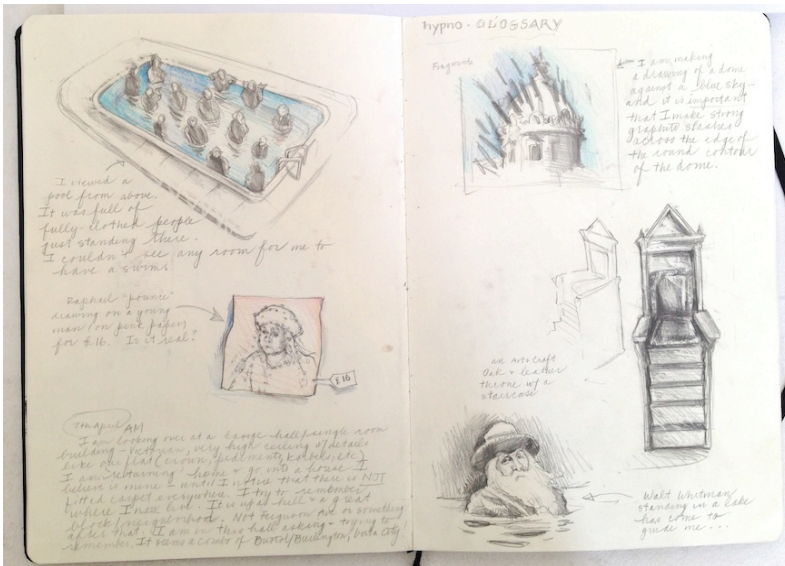 I viewed a
pool from above.
It was full of
fully-clothed people
just standing there.
I couldn't see any room for me to
have a swim.
Raphael "pounce"
drawing on a young
man on pink papers
for £16. Is it real?
£16
AM
I am looking over at a large half single room
building - Victorian, very high ceiling & details
like our flat (crown, pediments, korbels, etc)
I am returning home & go into a house I
believe is mine - until I notice that there is NOT
fitted carpet everywhere. I try to remember
where I now live. It is up a hill & a great
block/neighborhood. Not Ferguson Ave or something
after that. I am in this hall asking & trying to
remember. It seems a combo of Bristol/Burlington,
hypno-GLOSSARY
I am making
a drawing of a dome
against a blue sky -
and it is important
that I make strong
graphite slashes
across the edge of
the round contour
of the dome.
an Art & Craft
Oak & leather
throne w/ a
staircase
Walt Whitman
standing in a lake
has come to
guide me...